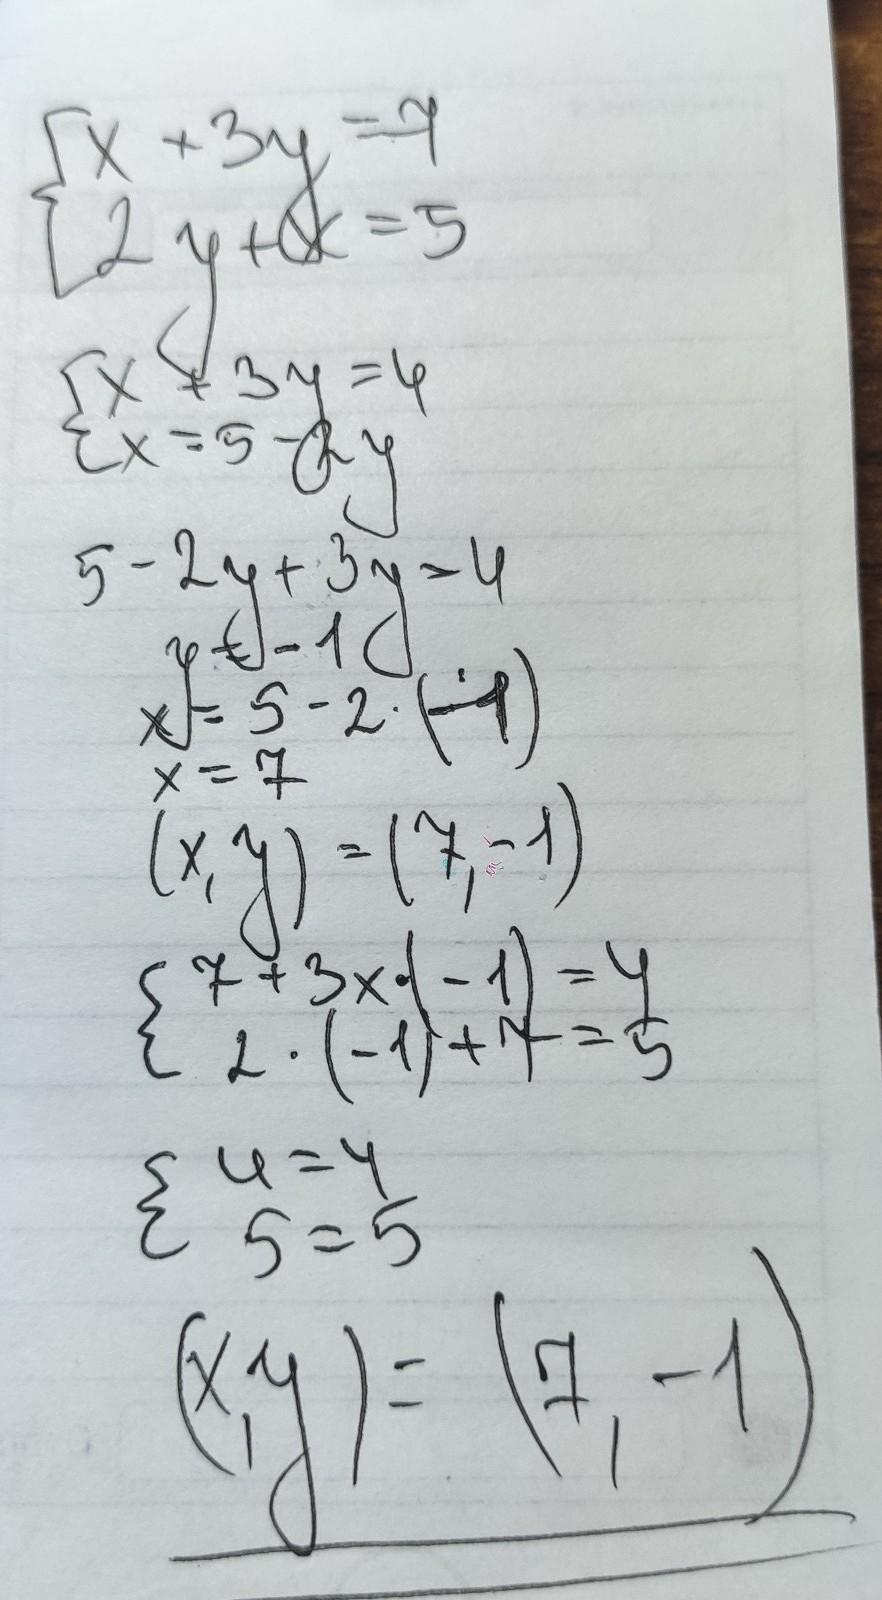 { x + 3y = 7
2y + x = 5
{ x + 3y = 4
x = 5 - 2y
5 - 2y + 3y = 4
y = - 1
x = 5 - 2 · (-1)
x = 7
(x, y) = (7, -1)
{ 7 + 3x · (-1) = 4
2 · (-1) + 7 = 5
{ 4 = 4
5 = 5
(x, y) = (7, -1)